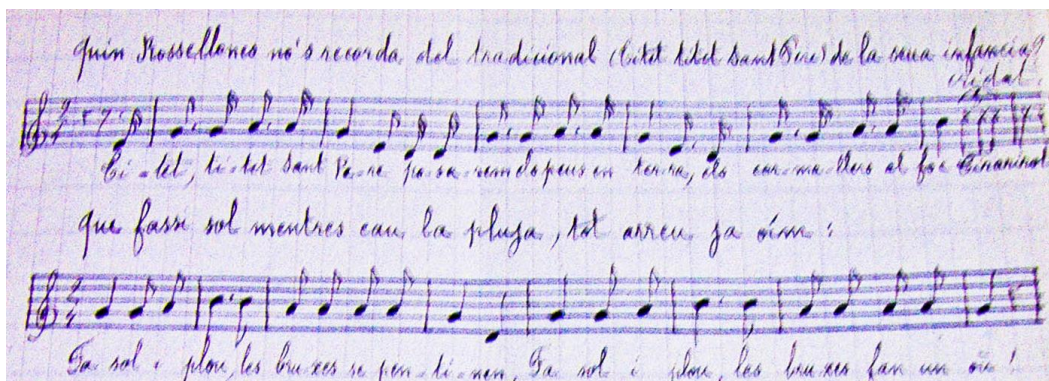 Quin Rossellones no's recorda del tradicional (Titet titet Sant Pere) de la seua infancia?
Vidal
Ti-tet, ti-tet Sant Pe-re po-sa-rem dos peus en ter-ra, els car-ma-llers al foc
Que fassi sol mentres cau la pluja, tot arreu ja oím:
Fa sol i plou, les bru-xes se pen-ti-nen, Fa sol i plou, les bruxes fan un ou!